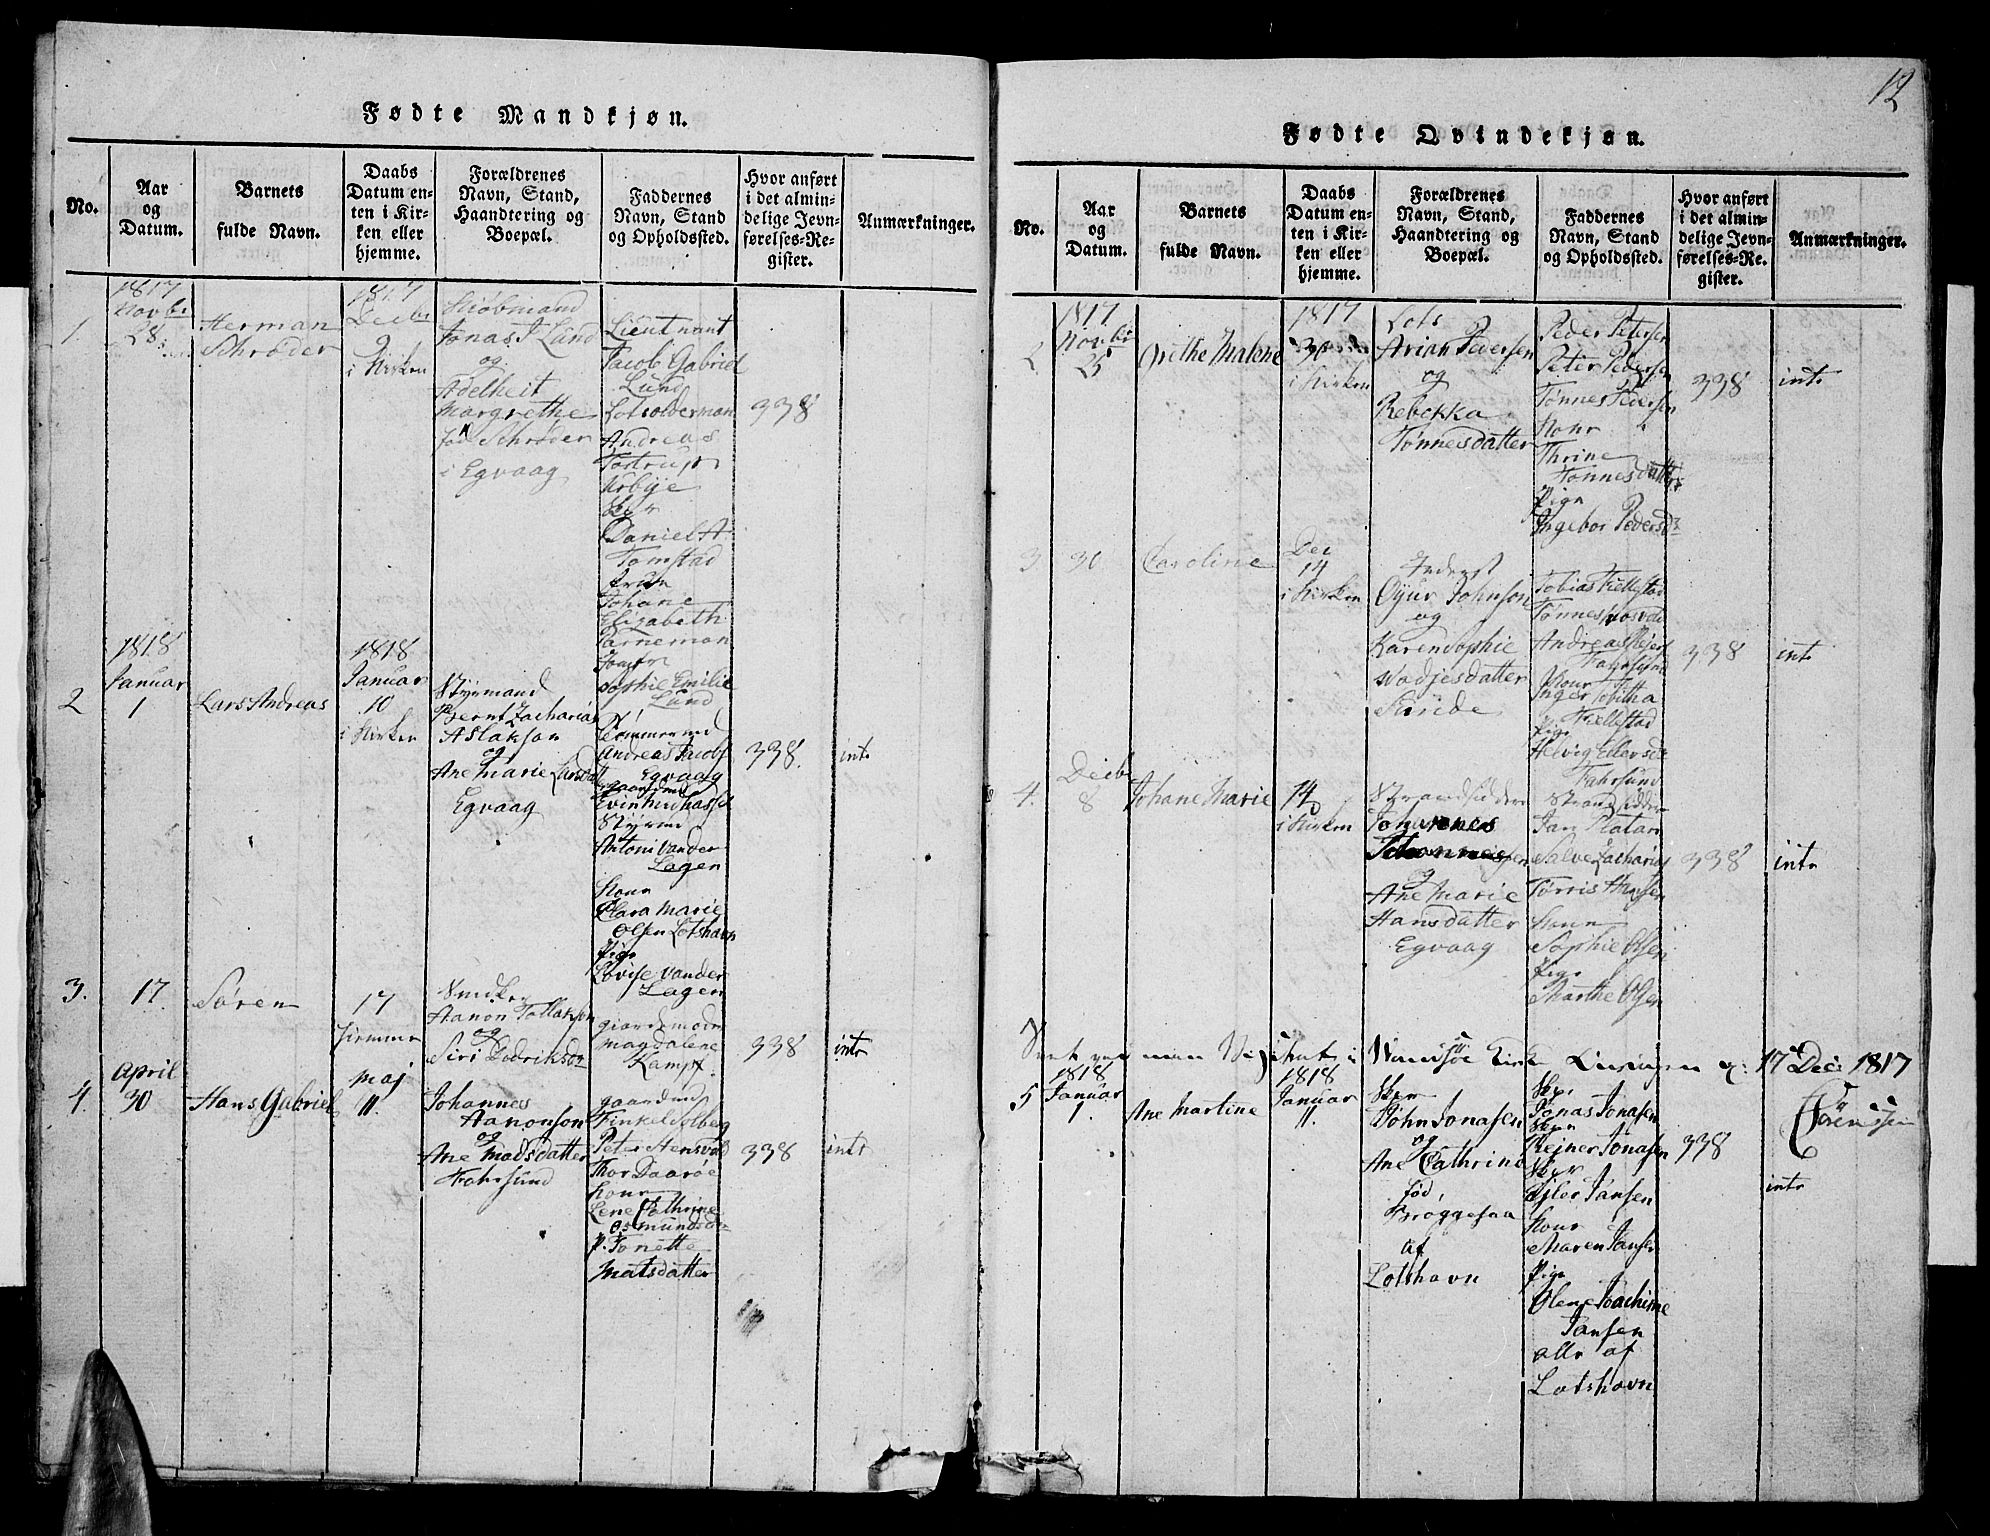 12
Fødte Mandkjøn.
No.
Aar
og
Datum.
Barnets
fulde Navn.
Daabs
Datum en-
ten i Kir-
ken eller
hjemme.
Forældrenes
Navn, Stand,
Haandtering og
Boepæl.
Faddernes
Navn, Stand
og Opholdssted.
Hvor anført
i det almin-
delige Jevn-
førelses-Re-
gister.
Anmærkninger.
1.
1817
Novbr
28
Herman
Schrøder
1817
Decbr
9
i Kirken
Kiøbmand
Jonas J Lund
og
Adelheit
Margrethe
fød Schrøder
i Egvaag
Lieutnant
Jacob Gabriel
Lund
Lotsolderman
Andreas
Tostrup
Urbye
Daniel A
Tomstad
Johane
Elisabeth
Parneman
Jomfr
Sophie Emilie
Lund
338
2
1818
Januar
1
Lars Andreas
1818
Januar
10
i Kirken
Styrmand
Bernt Zacharias
Aslaksen
og
Ane Marie Larsdatter
Egvaag
Andreas Jacobs
Egvaag
Styrmd
Antoni Vander
Lagen
Kone
Clara Marie
Olsen Lotshavn
Pige
Lovise Vander
Lagen
338.
intr
3.
17.
Søren
17
hiemme
Aanon Tollaksen
og
Siri Dedriksdr
Magdalene
Kampf.
338
intr
4.
April
30
Hans Gabriel
Maj
11.
Johannes
Aanonson
og
Ane Madsdatter
Fahrsund
gaardmd
Finkel Solberg
Peter Hensvold
Thor Daarøe
Kone
Lene Cathrine
Osmundsdr
P. Tonette
Matsdatter
338
intr
Fødte Qvindekjøn.
No.
Aar
og
Datum.
Barnets
fulde Navn.
Daabs
Datum en-
ten i Kir-
ken eller
hjemme.
Forældrenes
Navn, Stand,
Haandtering og
Boepæl.
Faddernes
Navn, Stand
og Opholdssted.
Hvor anført
i det almin-
delige Jevn-
førelses-Re-
gister.
Anmærkninger.
2
1817
Novbr
25
Grethe Malene
1817
30
i Kirken
Lots
Arian Pedersen
og
Rebekka
Tønnesdatter
Peder Petersen
Peter Pedersen
Tønnes Pedersen
Kone
Thrine
Tønnesdatter
Pige
Ingebor Pedersdr
338
intr
3
30
Caroline
Dec
14
i Kirken
Inderst
Øyur Johnson
og
Karen Sophie
Wadjesdatter
Tobias Tiellestad
Tønnes
Andreas
Fahrsund
Kone
Inger Tobitha
Tiellestad
Pige
Helvig Ellersdr
Fahrsund
338
intr
4.
Decbr
8
Johane Marie
14
i Kirken
Strandsidder
Johannes
Johannessen
og
Ane Marie
Hansdatter
Egvaag
Strandsidder
Jan Platan
Salve Zacharias
Tørris Hansen
Kone
Sophie Olsen
Pige
Marthe Olsen
338
intr
17de Dec: 1817
5
1818
Januar
1.
Ane Martine
1818
Januar
11.
Skpr
John Jonasen
og
Ane Cathrine
fød
Brøggesaa
af
Lotshavn
Skpr
Jonas Jonasen
Skpr
Rejner Jonasen
Skpr
Ejler Jansen
Kone
Maren Jansen
Pige
Olene Joachime
Jansen
alle af
Lotshavn
338
intr